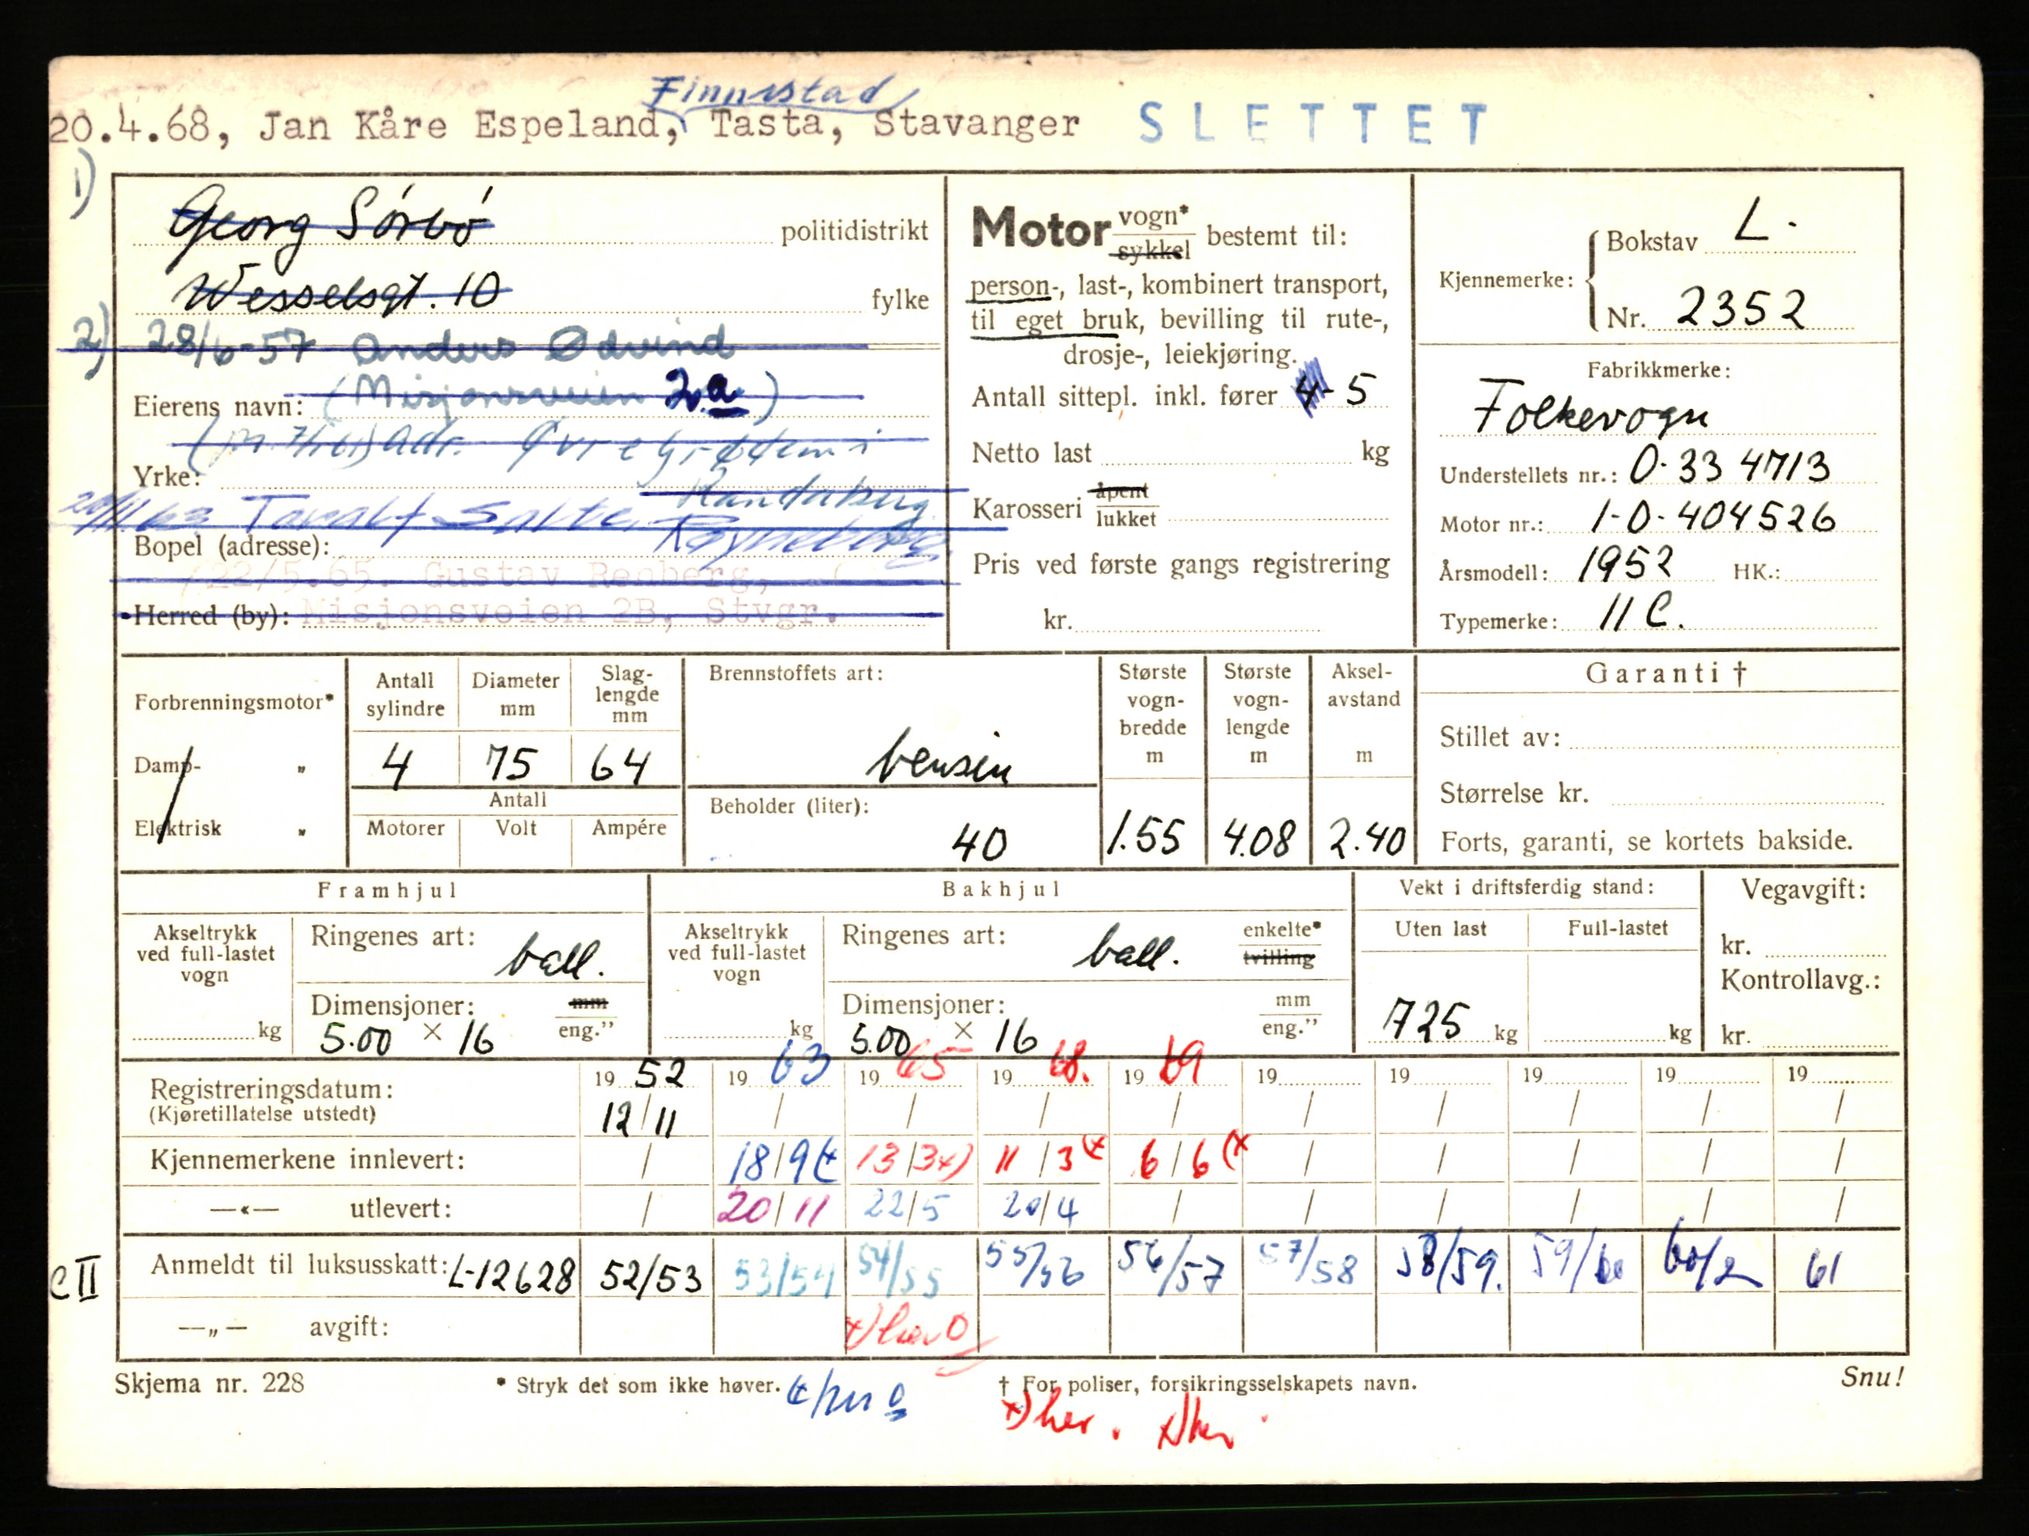 Finnestad
20.4.68, Jan Kåre Espeland, Tasta, Stavanger SLETTET
1)
Georg Sörbö politidistrikt
Wesselsgt. 10 fylke
2) 28/6-57 Anders Ødvind
Eierens navn: (Misjonsveien 2a)
adr. Øvre Grødem i
Yrke: Randaberg
20/11 63 Toralf Salte,
Bopel (adresse):
22/5.65. Gustav Renberg,
Herred (by): Misjonsveien 2B, Stvgr.
Motor vogn* sykkel bestemt til:
person-, last-, kombinert transport,
til eget bruk, bevilling til rute-,
drosje-, leiekjøring.
Antall sittepl. inkl. fører 4-5
Netto last kg
Karosseri åpent lukket
Pris ved første gangs registrering
kr.
Kjennemerke: Bokstav L.
Nr. 2352
Fabrikkmerke:
Folkevogn
Understellets nr.: 0-33 4713
Motor nr.: 1-0-404526
Årsmodell: 1952 HK.:
Typemerke: 11 C.
Forbrenningsmotor*
Damp- „
Elektrisk „
Antall sylindre 4
Diameter mm 75
Slag-lengde mm 64
Antall
Motorer Volt Ampére
Brennstoffets art:
bensin
Beholder (liter):
40
Største vogn-bredde m 1.55
Største vogn-lengde m 4.08
Aksel-avstand m 2.40
Garanti †
Stillet av:
Størrelse kr.
Forts, garanti, se kortets bakside.
Framhjul
Akseltrykk ved full-lastet vogn kg
Ringenes art: ball.
Dimensjoner: mm
5.00 × 16 eng.”
Bakhjul
Akseltrykk ved full-lastet vogn kg
Ringenes art: ball. enkelte* tvilling
Dimensjoner: mm
5.00 × 16 eng.”
Vekt i driftsferdig stand:
Uten last Full-lastet
725 kg kg
Vegavgift:
kr.
Kontrollavg.:
kr.
Registreringsdatum: 19 52 19 63 19 65 19 68. 19 69 19 19 19 19 19
(Kjøretillatelse utstedt) 12/11 / / / / / / / / /
Kjennemerkene innlevert: / 18/9 13/3 x) 11/3 6/6 (x / / / / /
—«— utlevert: / 20/11 22/5 20/4 / / / / / /
C II Anmeldt til luksusskatt: L-12628 52/53 53/54 54/55 55/56 56/57 57/58 58/59. 59/60 60/ 61
—„— avgift: x) her O
Skjema nr. 228 * Stryk det som ikke høver. † For poliser, forsikringsselskapets navn. Snu!
x) her. x) her